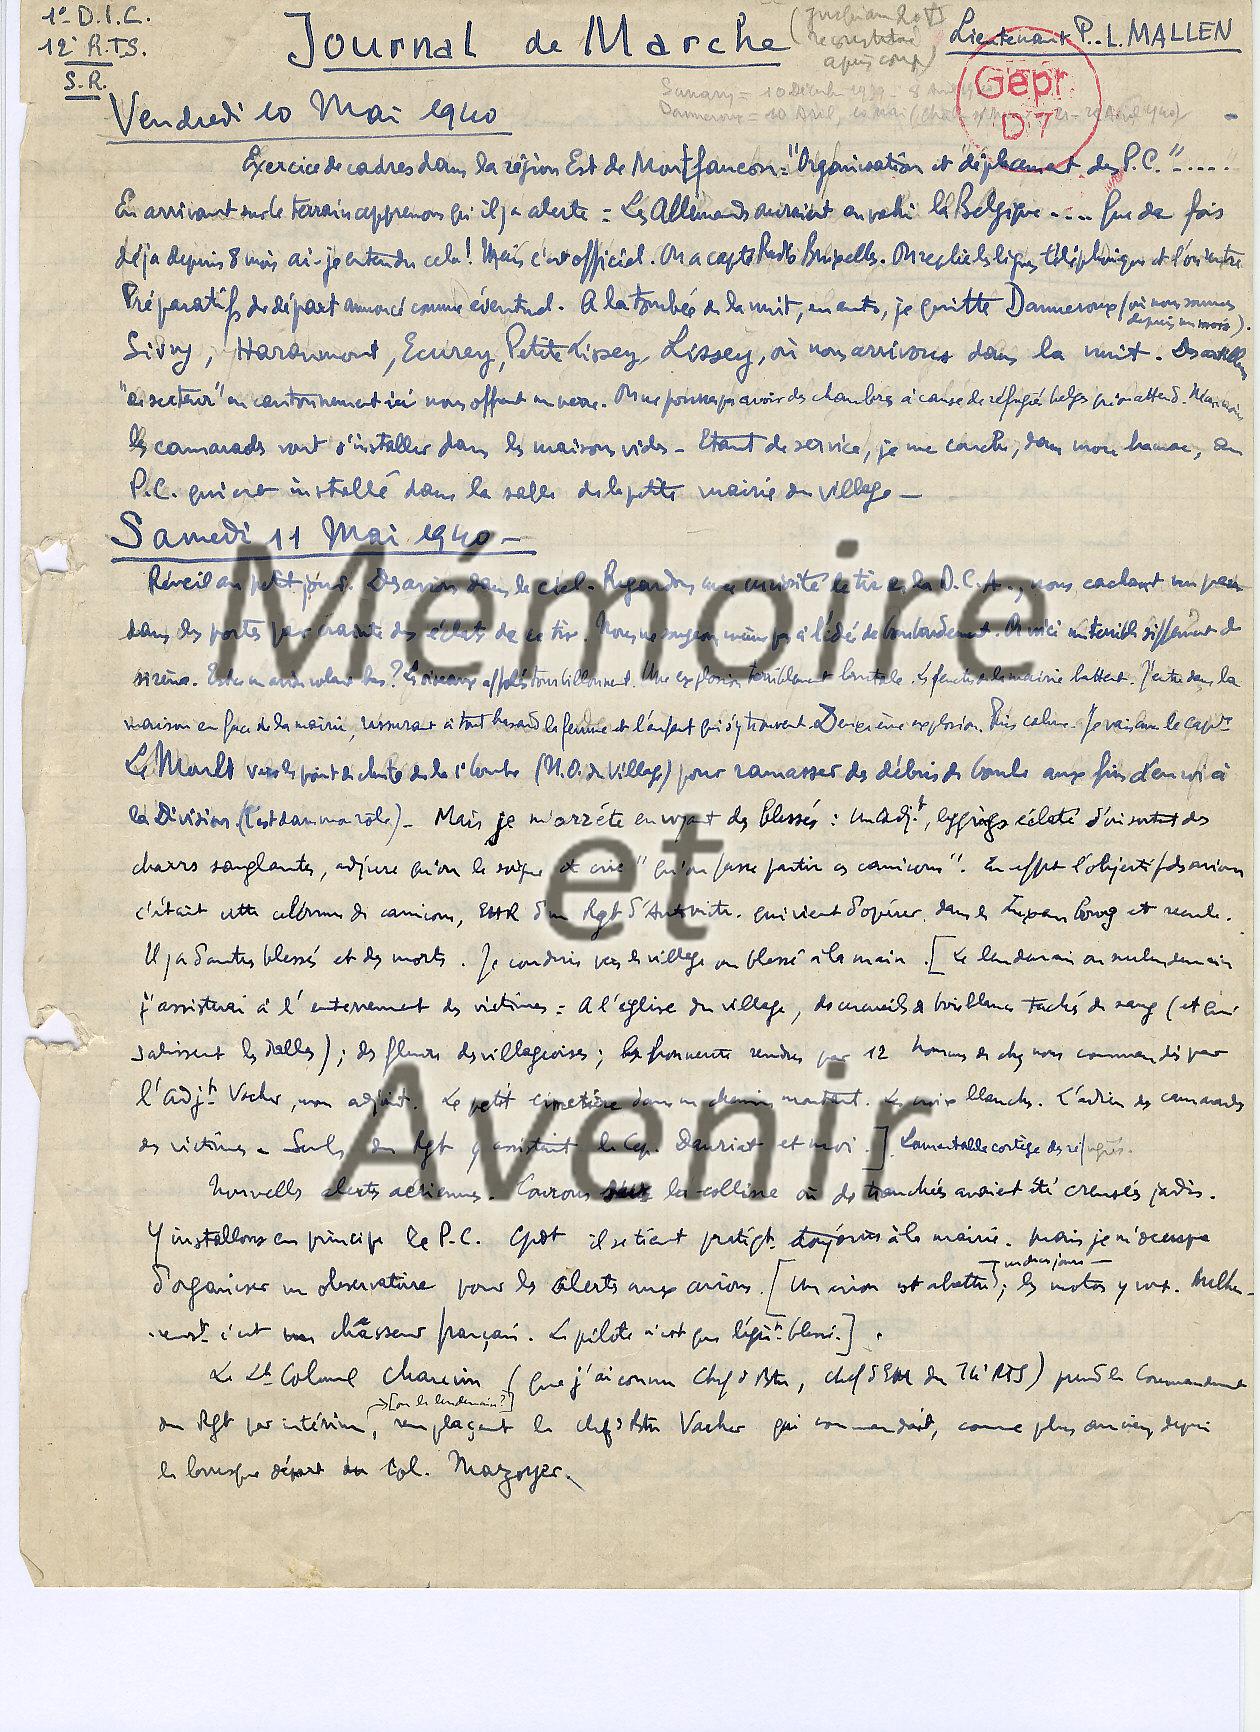 1e D.I.C.
12e R.T.S.
S.R.
Journal de Marche
(jusqu'au 20
reconstitué
après coup)
Lieutenant P.L. MALLEN
Gepr.
D 7
Sanary = 10 Décembre 1939 - 8 Avril
Dannevoux = 10 Avril, 10 mai
Vendredi 10 Mai 1940
Exercice de cadres dans la région Est de Montfaucon = "Organisation et déplacement des P.C." .....
En arrivant sur le terrain apprenons qu'il y a alerte = Les Allemands auraient envahi la Belgique .... Que de fois
déjà depuis 8 mois ai-je entendu cela ! Mais c'est officiel. On a capté Radio Bruxelles. On replie les lignes téléphoniques et l'on rentre
Préparatifs de départ annoncé comme éventuel. A la tombée de la nuit, en auto, je quitte Dannevoux (où nous sommes
depuis un mois).
Sivry, Haraumont, Ecurey, Petite Lissey, Lissey, où nous arrivons dans la nuit. Des artilleurs
"de secteur" en cantonnement ici nous offrent un verre. On ne pourra pas avoir des chambres à cause de réfugiés belges qu'on attend. Néanmoins
les camarades vont s'installer dans les maisons vides - Etant de service, je me couche, dans mon hamac, au
P.C. qui est installé dans la salle de la petite mairie du village -
Samedi 11 Mai 1940 -
Réveil au petit jour. Des avions dans le ciel. Regardons avec curiosité le tir de la D.C.A., nous cachant un peu
dans des portes par crainte des éclats de ce tir. Nous ne songeons même pas à l'idée de bombardement. On voici un terrible sifflement de
sirène. Est-ce un avion volant bas ? Les oiseaux affolés tourbillonnent. Une explosion terriblement brutale. Les fenêtres de la mairie battent. J'entre dans la
maison en face de la mairie, rassurant à tout hasard la femme et l'enfant qui s'y trouvent. Deuxième explosion. Puis calme. Je vais avec le capne
Le Moult vers le point de chute de la 1e bombe (N.O. du village) pour ramasser des débris de bombe aux fins d'envoi à
la Division (C'est dans mon rôle) - Mais je m'arrête en voyant des blessés : un Adjt, leggings éclaté d'où sortent des
chairs sanglantes, adjure qu'on le soigne et crie "qu'on fasse partir ces camions". En effet l'objectif des avions
c'était cette colonne de camions, EHR d'un Rgt d'Autos-Mitr. qui vient d'opérer dans le Luxembourg et recule.
Il y a d'autres blessés et des morts. Je conduis vers le village un blessé à la main. [Le lendemain ou surlendemain
j'assisterai à l'enterrement des victimes = A l'église du village, des cercueils de bois blanc tachés de sang (et qui
salissent les dalles) ; des fleurs des villageoises ; les honneurs rendus par 12 hommes de chez nous commandés par
l'Adjt Vacher, mon adjoint. Le petit cimetière dans un chemin montant. Les croix blanches. L'adieu des camarades
des victimes - Seuls du Rgt y assistent le Cap. Dauriat et moi.] Lamentable cortège des réfugiés.
Nouvelles alertes aériennes. Courons sur la colline où des tranchées avaient été creusées jadis.
Y installons en principe le P.C. Cpdt il se tient pratiqt toujours à la mairie. Mais je m'occupe
d'organiser un observatoire pour les alertes aux avions. [Un avion est abattu un des jours ; les motos y vont. Malheu-
reust c'est un chasseur français. Le pilote n'est que légèrt blessé.] .
Le Lt Colonel (que j'ai connu Chef de Btn, chef d'EM du 14e RTS) prend le Commandement
du Rgt par intérim [ou le lendemain ?], remplaçant le chef de Btn Vacher qui commandait, comme plus ancien, depuis
le brusque départ du Col. Mazoyer.
Mémoire
et
Avenir